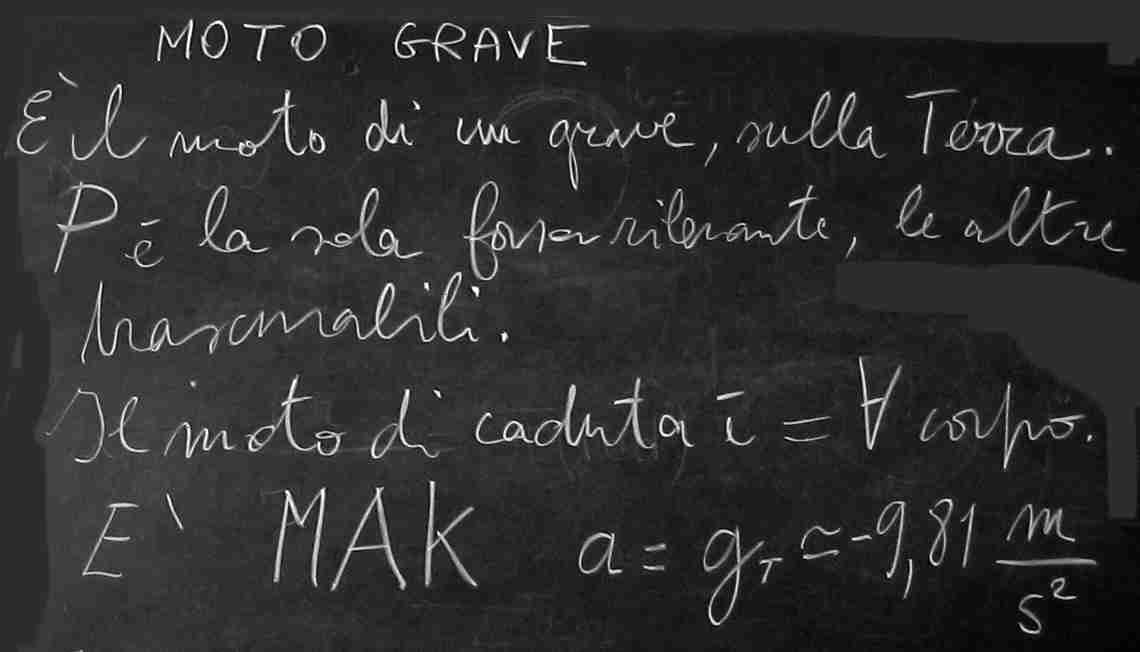 MOTO GRAVE
È il moto di un grave, sulla Terra.
P è la sola forza rilevante, le altre
trascurabili.
Il moto di caduta è = ∀ corpo.
E' MAK a = g_T ≃ -9,81 m/s²